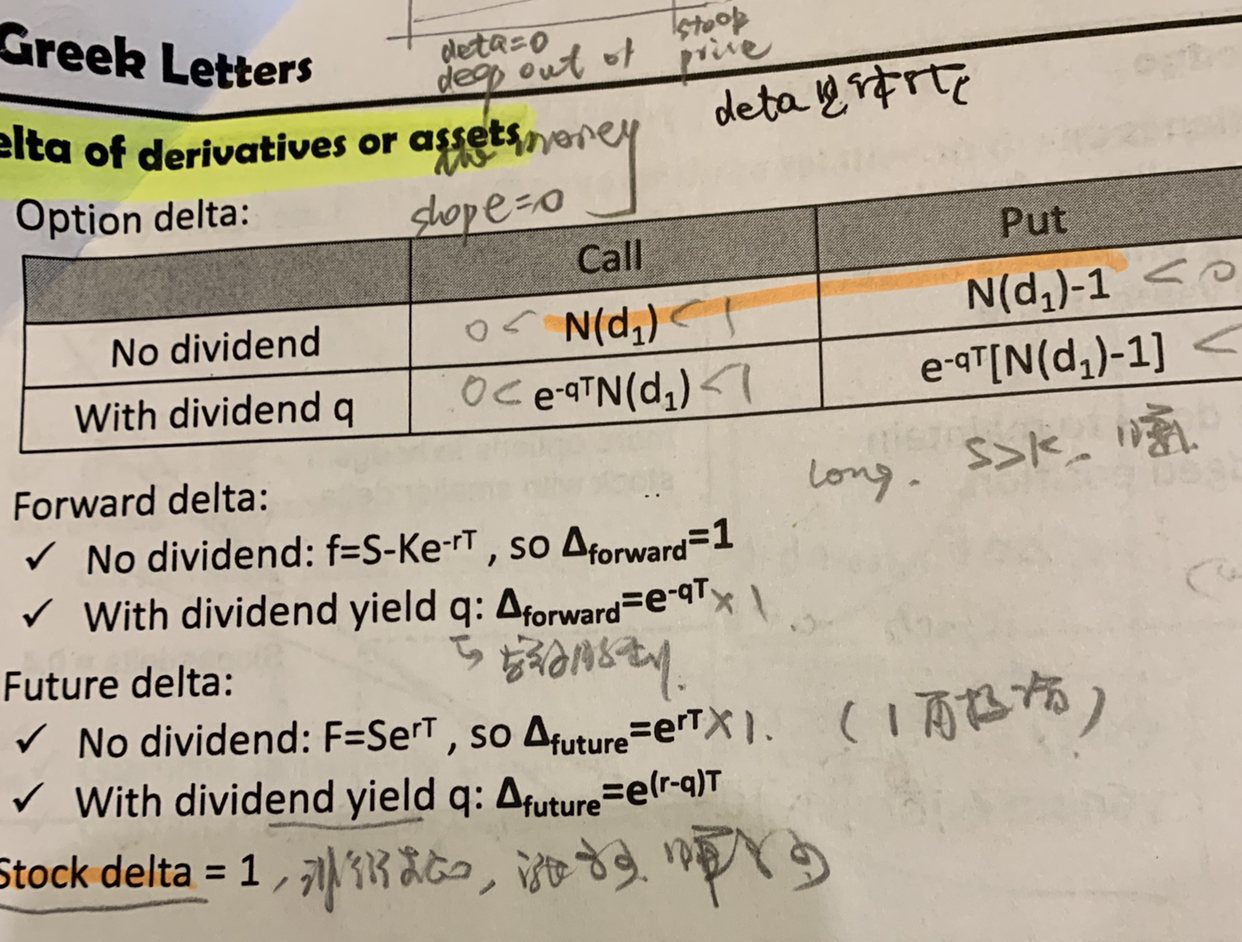 stock
deta=0
deep out of
price
Greek Letters
deta
elta of derivatives or assets
the money
Option delta:
slope=0
Call
Put
No dividend
0< N(d₁) <1
N(d₁)-1 <0
With dividend q
0< e⁻qᵀN(d₁) <1
e⁻qᵀ[N(d₁)-1] <
long. S>K
Forward delta:
✓ No dividend: f=S-Ke⁻ʳᵀ , so Δforward=1
✓ With dividend yield q: Δforward=e⁻qᵀ × 1
Future delta:
✓ No dividend: F=Seʳᵀ , so Δfuture=eʳᵀ × 1. (1
✓ With dividend yield q: Δfuture=e⁽ʳ⁻q⁾ᵀ
Stock delta = 1 ,